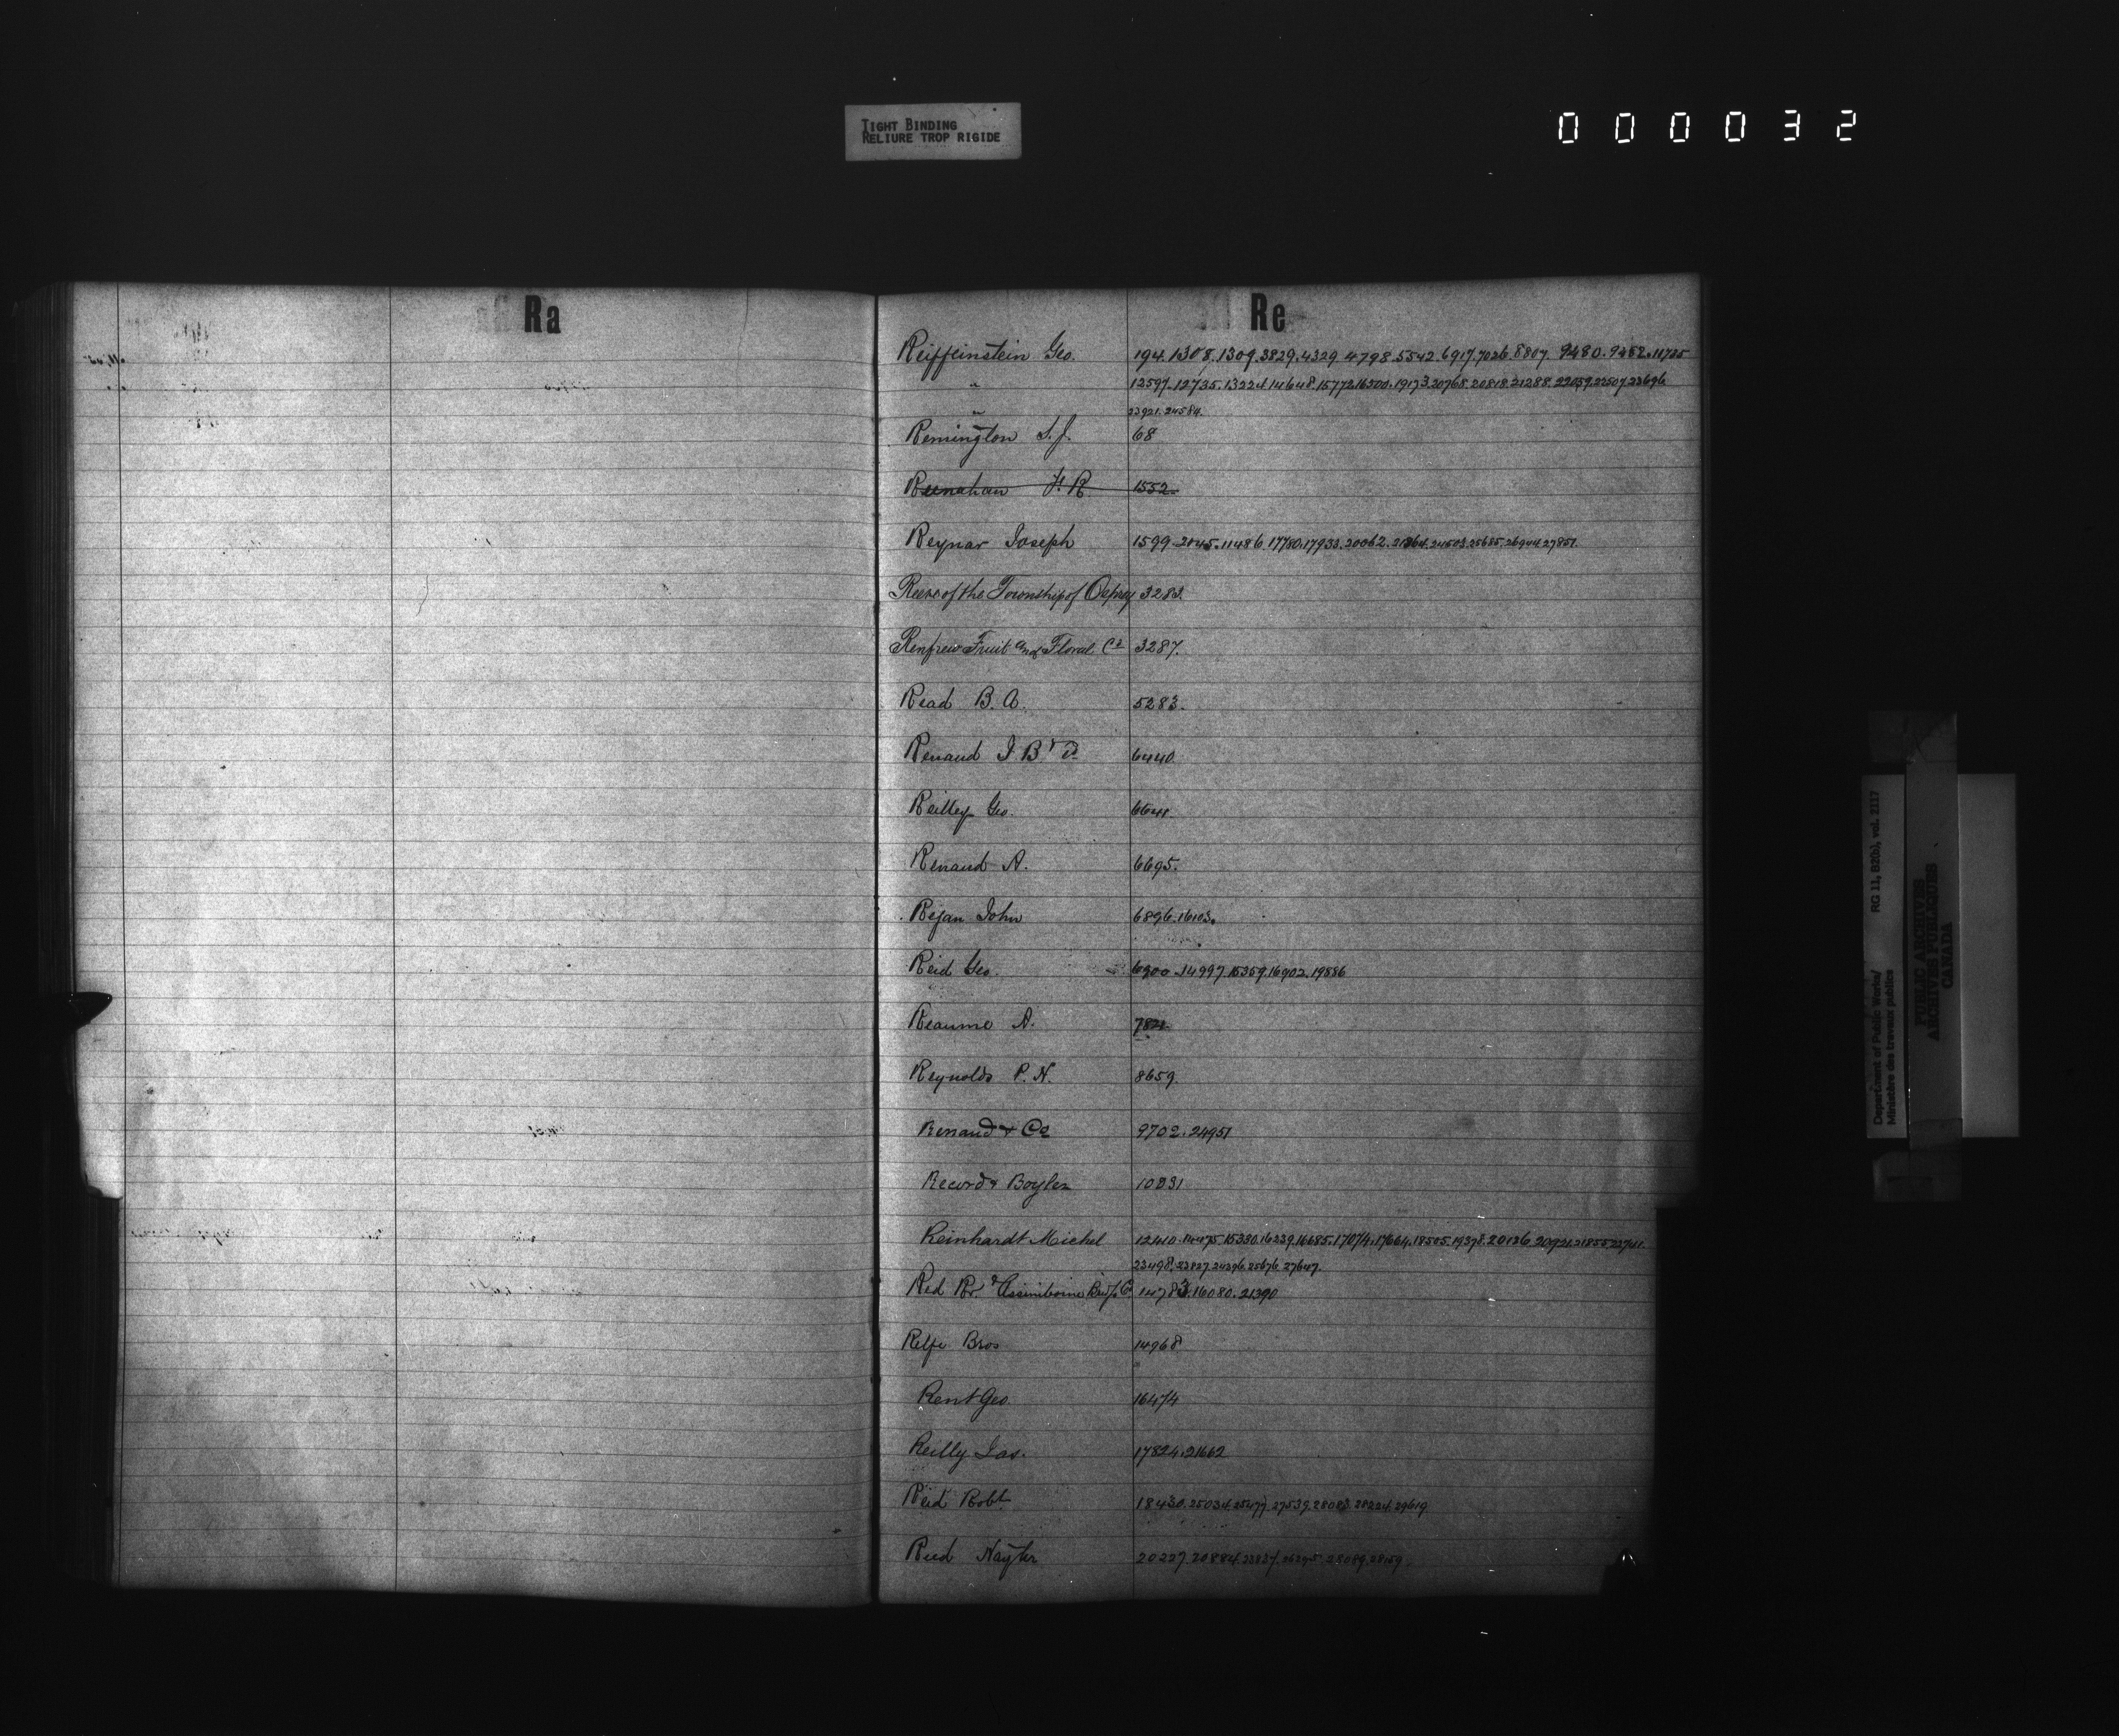 TIGHT BINDING
RELIURE TROP RIGIDE
000032
Ra
Re
Reiffeinstein Geo. 194. 1308. 1309. 3829. 4329 4798. 5542. 6917. 7026. 8807. 9480. 9482. 11725
" 12597. 12735. 13224. 14648. 15772. 16200. 19173. 20768. 20818. 21288. 22059. 22507. 23696
" 23921. 24584.
Remington S.J. 68
Reenahan H. R 1552.
Reynar Joseph 1599. 2045. 11486. 17780. 17933. 20062. 21864. 24503. 25685. 26944. 27851.
Reeve of the Township of Osprey 3283.
Renfrew Fruit and Floral Co 3287.
Read B. A. 5283.
Renaud J B 6440
Reilley Geo. 6641
Renaud A. 6695.
Rejan John 6896. 16103.
Reid Geo. 6900. 14997. 15359. 16902. 19886
Reaume A.
Reynolds P. N. 8659.
Renaud & Co 9702. 24951
Record & Boyles 10831
Reinhardt Michel 12410. 14475. 15330. 16239. 16685. 17074. 17664. 18505. 19378. 20136. 20921. 21855. 22741.
23498. 23827. 24296. 25676. 27647.
Red Rr. & Assiniboine Co. 14783. 16080. 21390
Relfe Bros 14968
Rent Geo. 16474
Reilly Jas. 17824. 21662
Reid Robt. 18430. 25034. 25477. 27539. 28083. 28224. 29619
Reed Nayler 20227. 20884. 23837. 26295. 28089. 28159
Department of Public Works/ RG 11, B2(b), vol. 2117
Ministère des travaux publics
PUBLIC ARCHIVES
ARCHIVES PUBLIQUES
CANADA